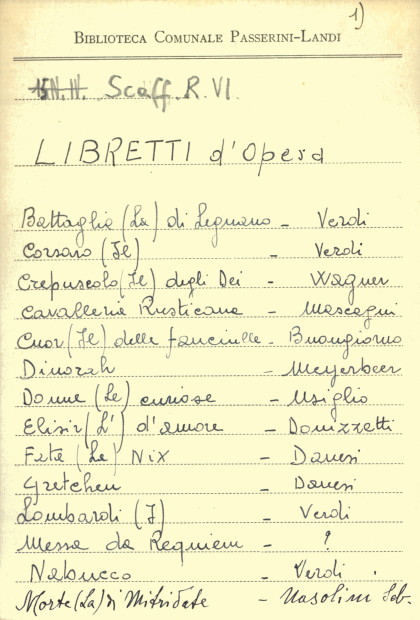 1)
BIBLIOTECA COMUNALE PASSERINI-LANDI
15 N.N. Scaff. R. VI.
LIBRETTI d'Opera
Battaglia (La) di Legnano - Verdi
Corsaro (Il) - Verdi
Crepuscolo (Il) degli Dei - Wagner
Cavalleria Rusticana - Mascagni
Cuor (Il) delle fanciulle - Buongiorno
Dinorah - Meyerbeer
Donne (Le) curiose - Usiglio
Elisir (L') d'amore - Donizzetti
Fata (La) Nix - Danesi
Gretchen - Danesi
Lombardi (I) - Verdi
Messa da Requiem - ?
Nabucco - Verdi.
Morte (La) di Mitridate - Nasolini Seb.